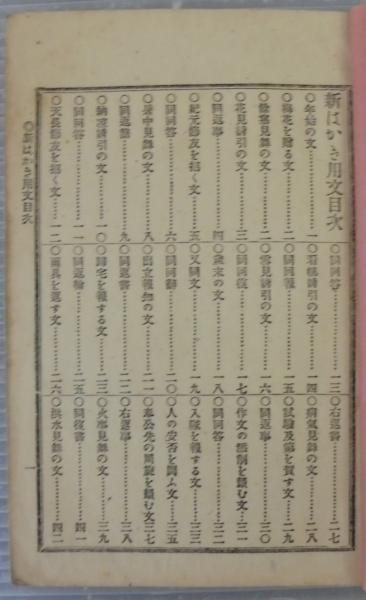 新はがき用文目次
○年始の文…………一
○梅花を贈る文……二
○餘寒見舞の文……二
○花見誘引の文……三
○同返事……………四
○紀元節友を招く文…五
○同回答……………六
○暑中見舞の文……八
○同返書……………九
○納凉誘引の文…一〇
○同回答…………一一
○天長節友を招く文…一二
○同回答…………一三
○右返書…………二七
○病気見舞の文…二八
○同回報…………一五
○試驗及第を賀す文…二九
○雪見誘引の文…一六
○同返事…………三〇
○同回復…………一七
○作文の添削を頼む文…三一
○歳末の文………一八
○同回答
○又同文…………一九
○入隊を報する文…三三
○人の安否を問ふ文…三五
○出立報知の文…二一
○奉公先の周旋を頼む文三七
○同返書…………二二
○右返事…………三八
○歸宅を報する文…二三
○火事見舞の文…三九
○同復書…………四一
○雨具を返す文…二六
○洪水見舞の文…四二
○新はがき用文目次
一